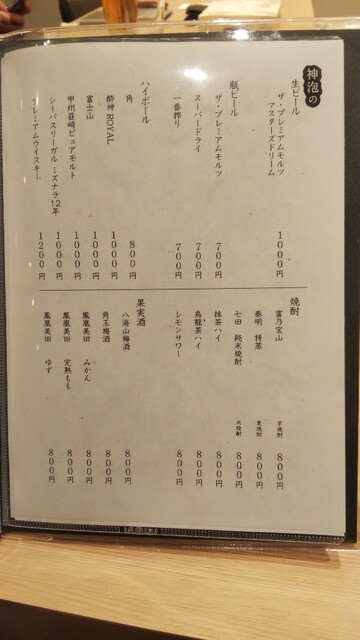 神泡の
生ビール
ザ・プレミアムモルツ
マスターズドリーム 1000円
瓶ビール
ザ・プレミアムモルツ 700円
スーパードライ 700円
一番搾り 700円
ハイボール
角 800円
酔神 ROYAL 1000円
富士山 1000円
甲州韮崎ピュアモルト 1000円
シーバスリーガル ミズナラ12年 1000円
プレミアムウイスキー 1200円
焼酎
富乃宝山 芋焼酎 800円
泰明 特蒸 麦焼酎 800円
七田 純米焼酎 米焼酎 800円
抹茶ハイ 800円
烏龍茶ハイ 800円
レモンサワー 800円
果実酒
八海山梅酒 800円
角玉梅酒 800円
鳳凰美田 みかん 800円
鳳凰美田 完熟もも 800円
鳳凰美田 ゆず 800円